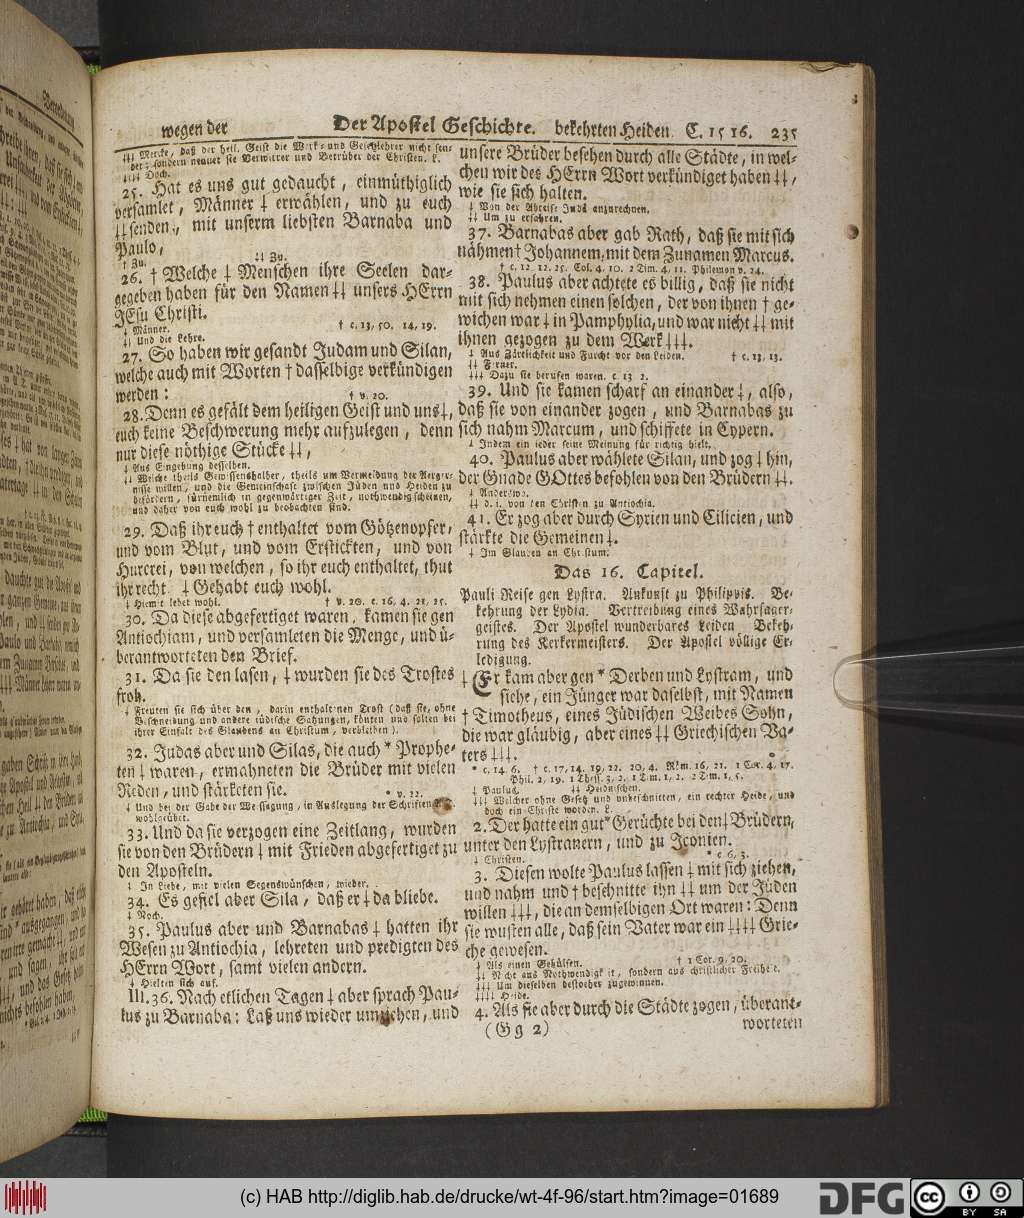 wegen der Der Apostel Geschichte. bekehrten Heiden. C. 15 16. 235
‡‡‡ Mercke, daß der heil. Geist die Werk- und Gesetzlehrer nicht sen-
det; sondern nennet sie Verwirrer und Betrüber der Christen. L.
‡‡‡‡ Doch.
25. Hat es uns gut gedaucht, einmüthiglich
versamlet, Männer ‡ erwählen, und zu euch
‡‡ senden, mit unserm liebsten Barnaba und
Paulo,
‡ Zu. ‡‡ Zu.
26. † Welche ‡ Menschen ihre Seelen dar-
gegeben haben für den Namen ‡‡ unsers HErrn
JEsu Christi.
‡ Männer. † c. 13, 50. 14, 19.
‡‡ Und die Lehre.
27. So haben wir gesandt Judam und Silan,
welche auch mit Worten † dasselbige verkündigen
werden: † v. 20.
28. Denn es gefält dem heiligen Geist und uns ‡,
euch keine Beschwerung mehr aufzulegen, denn
nur diese nöthige Stücke ‡‡,
‡ Aus Eingebung desselben.
‡‡ Welche theils Gewissenshalber, theils um Vermeidung der Aerger-
nisse willen, und die Gemeinschaft zwischen Jüden und Heiden zu
befördern, fürnemlich in gegenwärtiger Zeit, nothwendig scheinen,
und daher von euch wohl zu beobachten sind.
29. Daß ihr euch † enthaltet vom Götzenopfer,
und vom Blut, und vom Erstickten, und von
Hurerei, von welchen, so ihr euch enthaltet, thut
ihr recht. ‡ Gehabt euch wohl.
‡ Hiemit lebet wohl. † v. 20. c. 16, 4. 21, 25.
30. Da diese abgefertiget waren, kamen sie gen
Antiochiam, und versamleten die Menge, und ü-
berantworteten den Brief.
31. Da sie den lasen, ‡ wurden sie des Trostes
froh.
‡ Freuten sie sich über den, darin enthaltnen Trost (daß sie, ohne
Beschneidung und andere jüdische Satzungen, könten und solten bei
ihrer Einfalt des Glaubens an Christum, verbleiben).
32. Judas aber und Silas, die auch * Prophe-
ten ‡ waren, ermahneten die Brüder mit vielen
Reden, und stärketen sie. * v. 22.
‡ Und bei der Gabe der Weissagung, in Auslegung der Schriften
wohlgeübet.
33. Und da sie verzogen eine Zeitlang, wurden
sie von den Brüdern ‡ mit Frieden abgefertiget zu
den Aposteln.
‡ In Liebe, mit vielen Segenswünschen, wieder.
34. Es gefiel aber Sila, daß er ‡ da bliebe.
‡ Noch.
35. Paulus aber und Barnabas ‡ hatten ihr
Wesen zu Antiochia, lehreten und predigten des
HErrn Wort, samt vielen andern.
‡ Hielten sich auf.
III. 36. Nach etlichen Tagen ‡ aber sprach Pau-
lus zu Barnaba: Laß uns wieder umziehen, und
unsere Brüder besehen durch alle Städte, in wel-
chen wir des HErrn Wort verkündiget haben ‡‡,
wie sie sich halten.
‡ Von der Abreise Judä anzurechnen.
‡‡ Um zu erfahren.
37. Barnabas aber gab Rath, daß sie mit sich
nähmen † Johannem, mit dem Zunamen Marcus.
† c. 12, 12. 25. Col. 4, 10. 2 Tim. 4, 11. Philemon v. 24.
38. Paulus aber achtete es billig, daß sie nicht
mit sich nehmen einen solchen, der von ihnen † ge-
wichen war ‡ in Pamphylia, und war nicht ‡‡ mit
ihnen gezogen zu dem Werk ‡‡‡.
‡ Aus Zärtlichkeit und Furcht vor den Leiden. † c. 13, 13.
‡‡ Ferner.
‡‡‡ Dazu sie berufen waren. c. 13 2.
39. Und sie kamen scharf an einander ‡, also,
daß sie von einander zogen, und Barnabas zu
sich nahm Marcum, und schiffete in Cypern.
‡ Indem ein jeder seine Meinung für richtig hielt.
40. Paulus aber wählete Silan, und zog ‡ hin,
der Gnade GOttes befohlen von den Brüdern ‡‡.
‡ Anderswo.
‡‡ d. i. von den Christen zu Antiochia.
41. Er zog aber durch Syrien und Cilicien, und
stärkte die Gemeinen ‡.
‡ Im Glauben an Christum.
Das 16. Capitel.
Pauli Reise gen Lystra. Ankunft zu Philippis. Be-
kehrung der Lydia. Vertreibung eines Wahrsager-
geistes. Der Apostel wunderbares Leiden Bekeh-
rung des Kerkermeisters. Der Apostel völlige Er-
ledigung.
‡ Er kam aber gen * Derben und Lystram, und
siehe, ein Jünger war daselbst, mit Namen
† Timotheus, eines Jüdischen Weibes Sohn,
die war gläubig, aber eines ‡‡ Griechischen Va-
ters ‡‡‡.
* c. 14, 6. † c. 17, 14. 19, 22. 20, 4. Röm. 16, 21. 1 Cor. 4, 17.
Phil. 2, 19. 1 Thess. 3, 2. 1 Tim. 1, 2. 2 Tim. 1, 5.
‡ Paulus. ‡‡ Heidnischen.
‡‡‡ Welcher ohne Gesetz und unbeschnitten, ein rechter Heide, und
doch ein Christe worden. L.
2. Der hatte ein gut * Gerüchte bei den ‡ Brüdern,
unter den Lystranern, und zu Iconien.
‡ Christen. * c. 6, 3.
3. Diesen wolte Paulus lassen ‡ mit sich ziehen,
und nahm und † beschnitte ihn ‡‡ um der Jüden
willen ‡‡‡, die an demselbigen Ort waren: Denn
sie wusten alle, daß sein Vater war ein ‡‡‡‡ Grie-
che gewesen.
‡ Als einen Gehülfen. † 1 Cor. 9, 20.
‡‡ Nicht aus Nothwendigkeit, sondern aus christlicher Freiheit.
‡‡‡ Um dieselben destoeher zugewinnen.
‡‡‡‡ Heide.
4. Als sie aber durch die Städte zogen, überant-
(Gg 2) worteten
(c) HAB http://diglib.hab.de/drucke/wt-4f-96/start.htm?image=01689
DFG
cc
BY SA